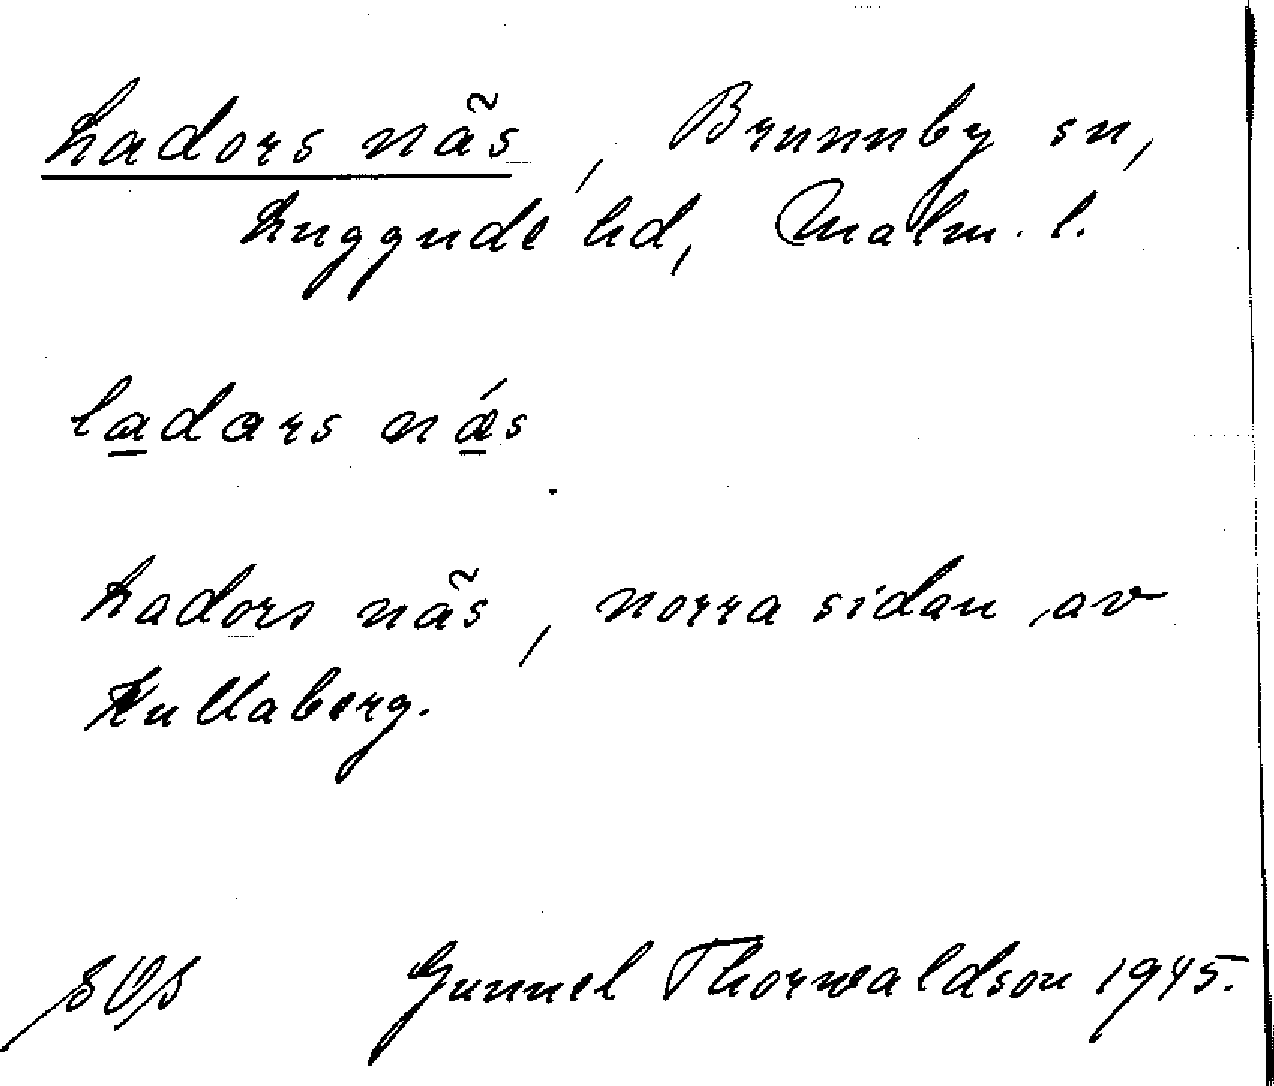 Ladors näs, Brunnby sn,
Luggude hd, Malm. l.
ladars næ´s
Ladors näs, norra sidan av
Kullaberg.
Gunnel Thorwaldson 1945.